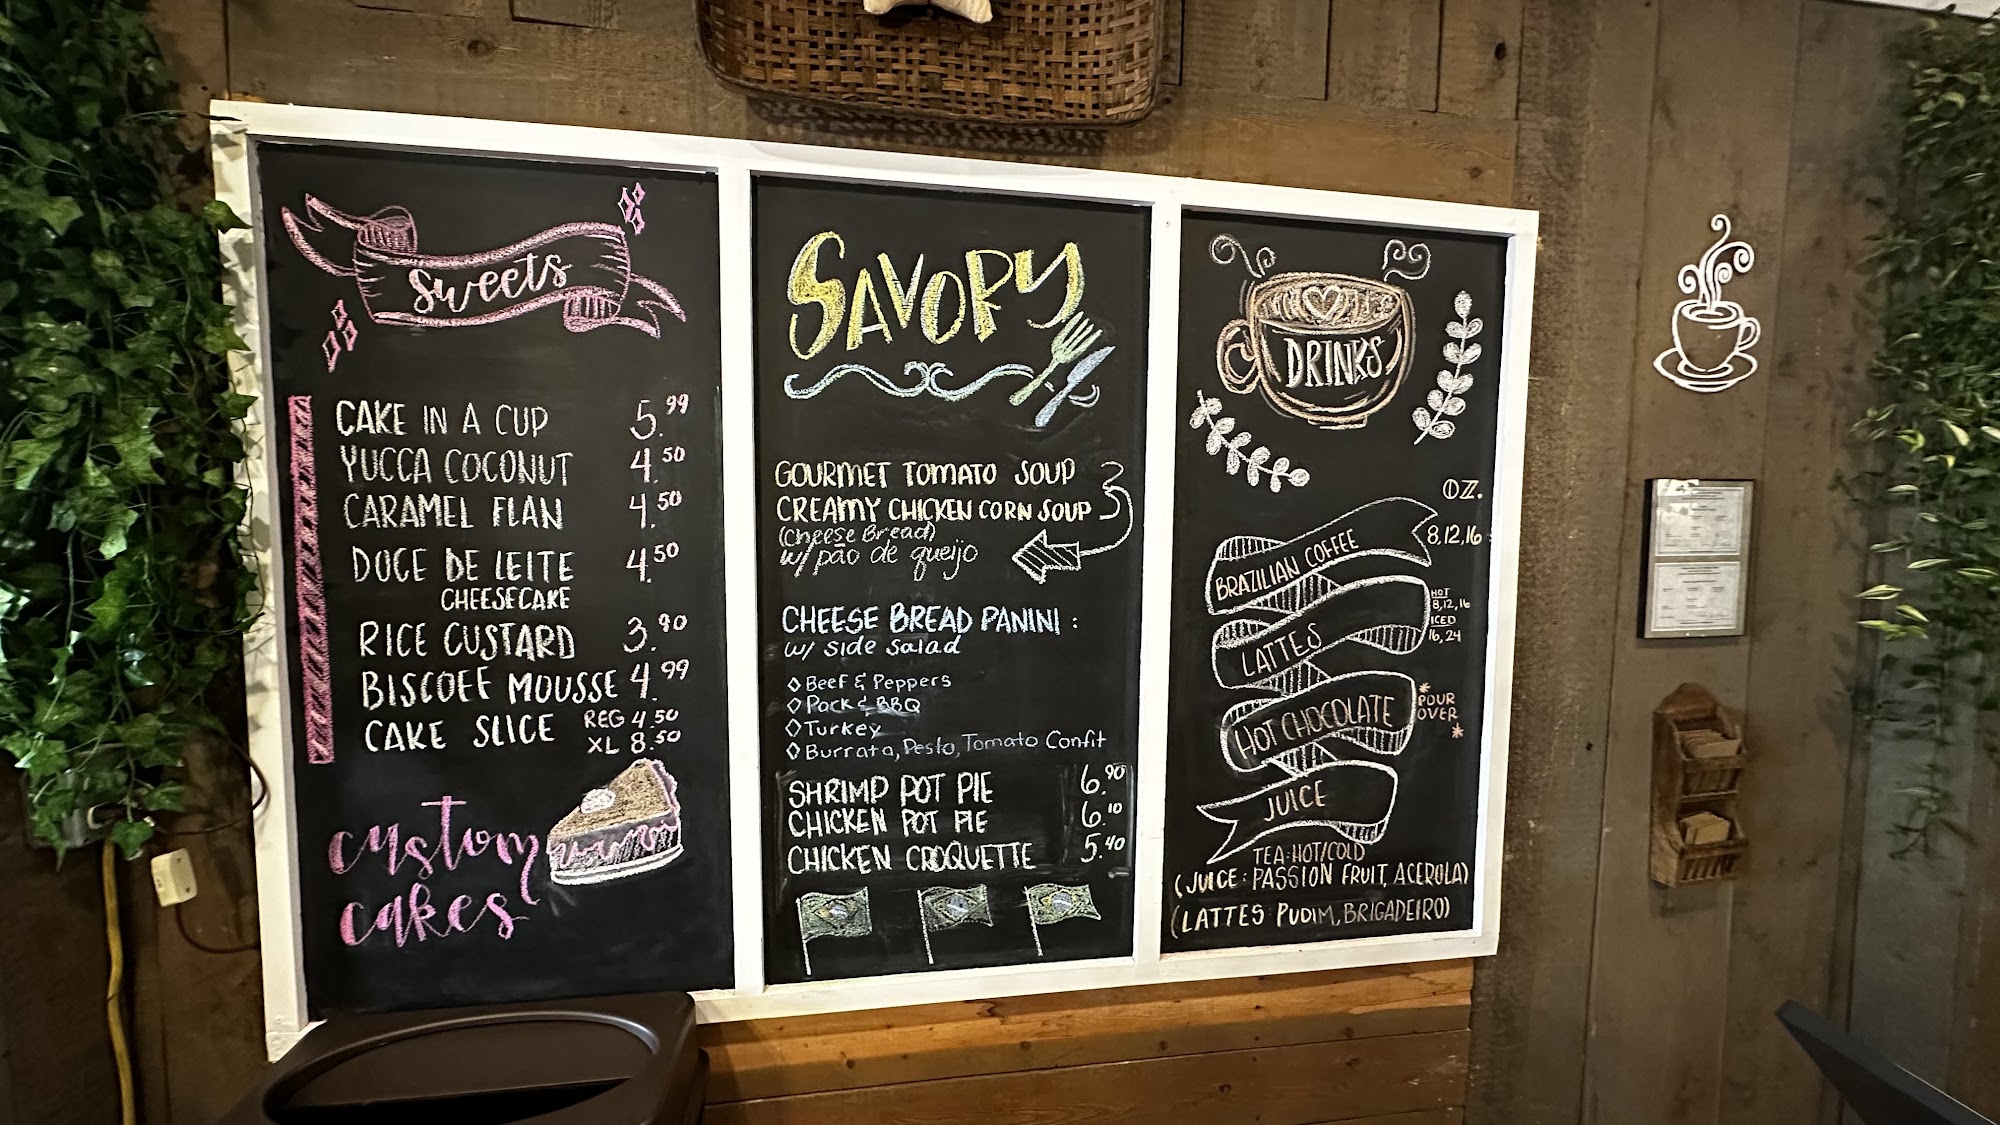 Sweets
CAKE IN A CUP 5.99
YUCCA COCONUT 4.50
CARAMEL FLAN 4.50
DOCE DE LEITE 4.50
CHEESECAKE
RICE CUSTARD 3.90
BISCOFF MOUSSE 4.99
CAKE SLICE REG 4.50
XL 8.50
custom
cakes
SAVORY
GOURMET TOMATO SOUP
CREAMY CHICKEN CORN SOUP
(Cheese Bread)
w/ pão de queijo
CHEESE BREAD PANINI :
w/ side salad
Beef & Peppers
Pork & BBQ
Turkey
Burrata, Pesto, Tomato Confit
SHRIMP POT PIE 6.90
CHICKEN POT PIE 6.10
CHICKEN CROQUETTE 5.40
DRINKS
OZ.
BRAZILIAN COFFEE 8,12,16
LATTES
HOT
8,12,16
ICED
16,24
HOT CHOCOLATE
*POUR
OVER*
JUICE
TEA:HOT/COLD
(JUICE: PASSION FRUIT, ACEROLA)
(LATTES: PUDIM, BRIGADEIRO)